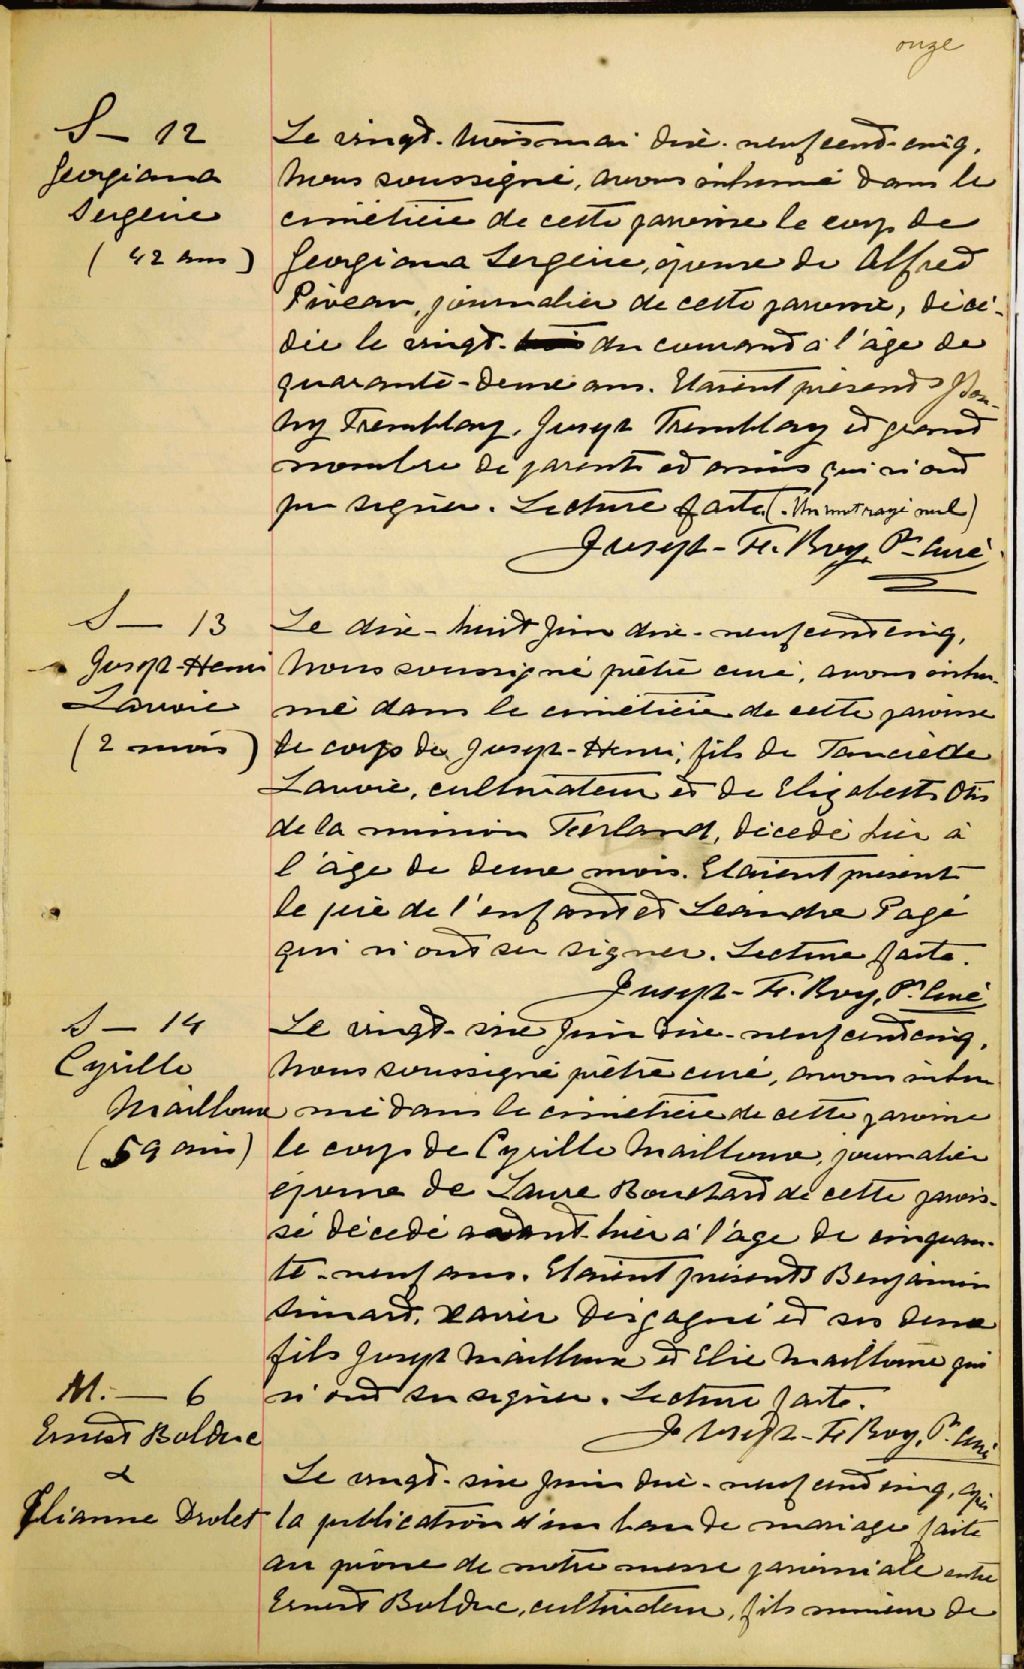 onze
S — 12
Georgiana
Sergerie
( 42 ans )
Le vingt-trois mai dix-neuf cent-cinq,
Nous soussigné, avons inhumé dans le
cimétière de cette paroisse le corps de
Georgiana Sergerie, épouse de Alfred
Piveau, journalier de cette paroisse, décé-
dée le vingt- du courant à l'âge de
quarante-deux ans. Etaient présents John-
ny Tremblay, Joseph Tremblay et grand
nombre de parents et amis qui n'ont
pu signer. Lecture faite. (Un mot rayé nul)
Joseph-Fr. Roy, Ptre Curé
S — 13
Joseph-Henri
Lavoie
( 2 mois )
Le dix-huit Juin dix-neuf cent cinq,
Nous soussigné prêtre curé, avons inhu-
mé dans le cimétière de cette paroisse
le corps de Joseph-Henri, fils de Tancrède
Lavoie, cultivateur et de Elizabeth Otis
de la mission Ferland, décédé hier à
l'âge de deux mois. Etaient présents
le père de l'enfant et Léandre Pagé
qui n'ont su signer. Lecture faite.
Joseph-Fr. Roy, Ptre Curé
S — 14
Cyrille
Mailloux
( 59 ans )
Le vingt-six Juin dix-neuf cent cinq,
Nous soussigné prêtre curé, avons inhu-
mé dans le cimétière de cette paroisse
le corps de Cyrille Mailloux, journalier
époux de Laure Bouchard de cette parois-
se décédé avant-hier à l'âge de cinquan-
te-neuf ans. Etaient présents Benjamin
Simard, Xavier Desgagné et ses deux
fils Joseph Mailloux et Elie Mailloux qui
n'ont su signer. Lecture faite.
Joseph-Fr Roy, Ptre Curé
M. — 6
Ernest Bolduc
&
Elianne Drolet
Le vingt-six Juin dix-neuf cent cinq, après
la publication d'un ban de mariage faite
au prône de notre messe paroissiale entre
Ernest Bolduc, cultivateur, fils mineur de